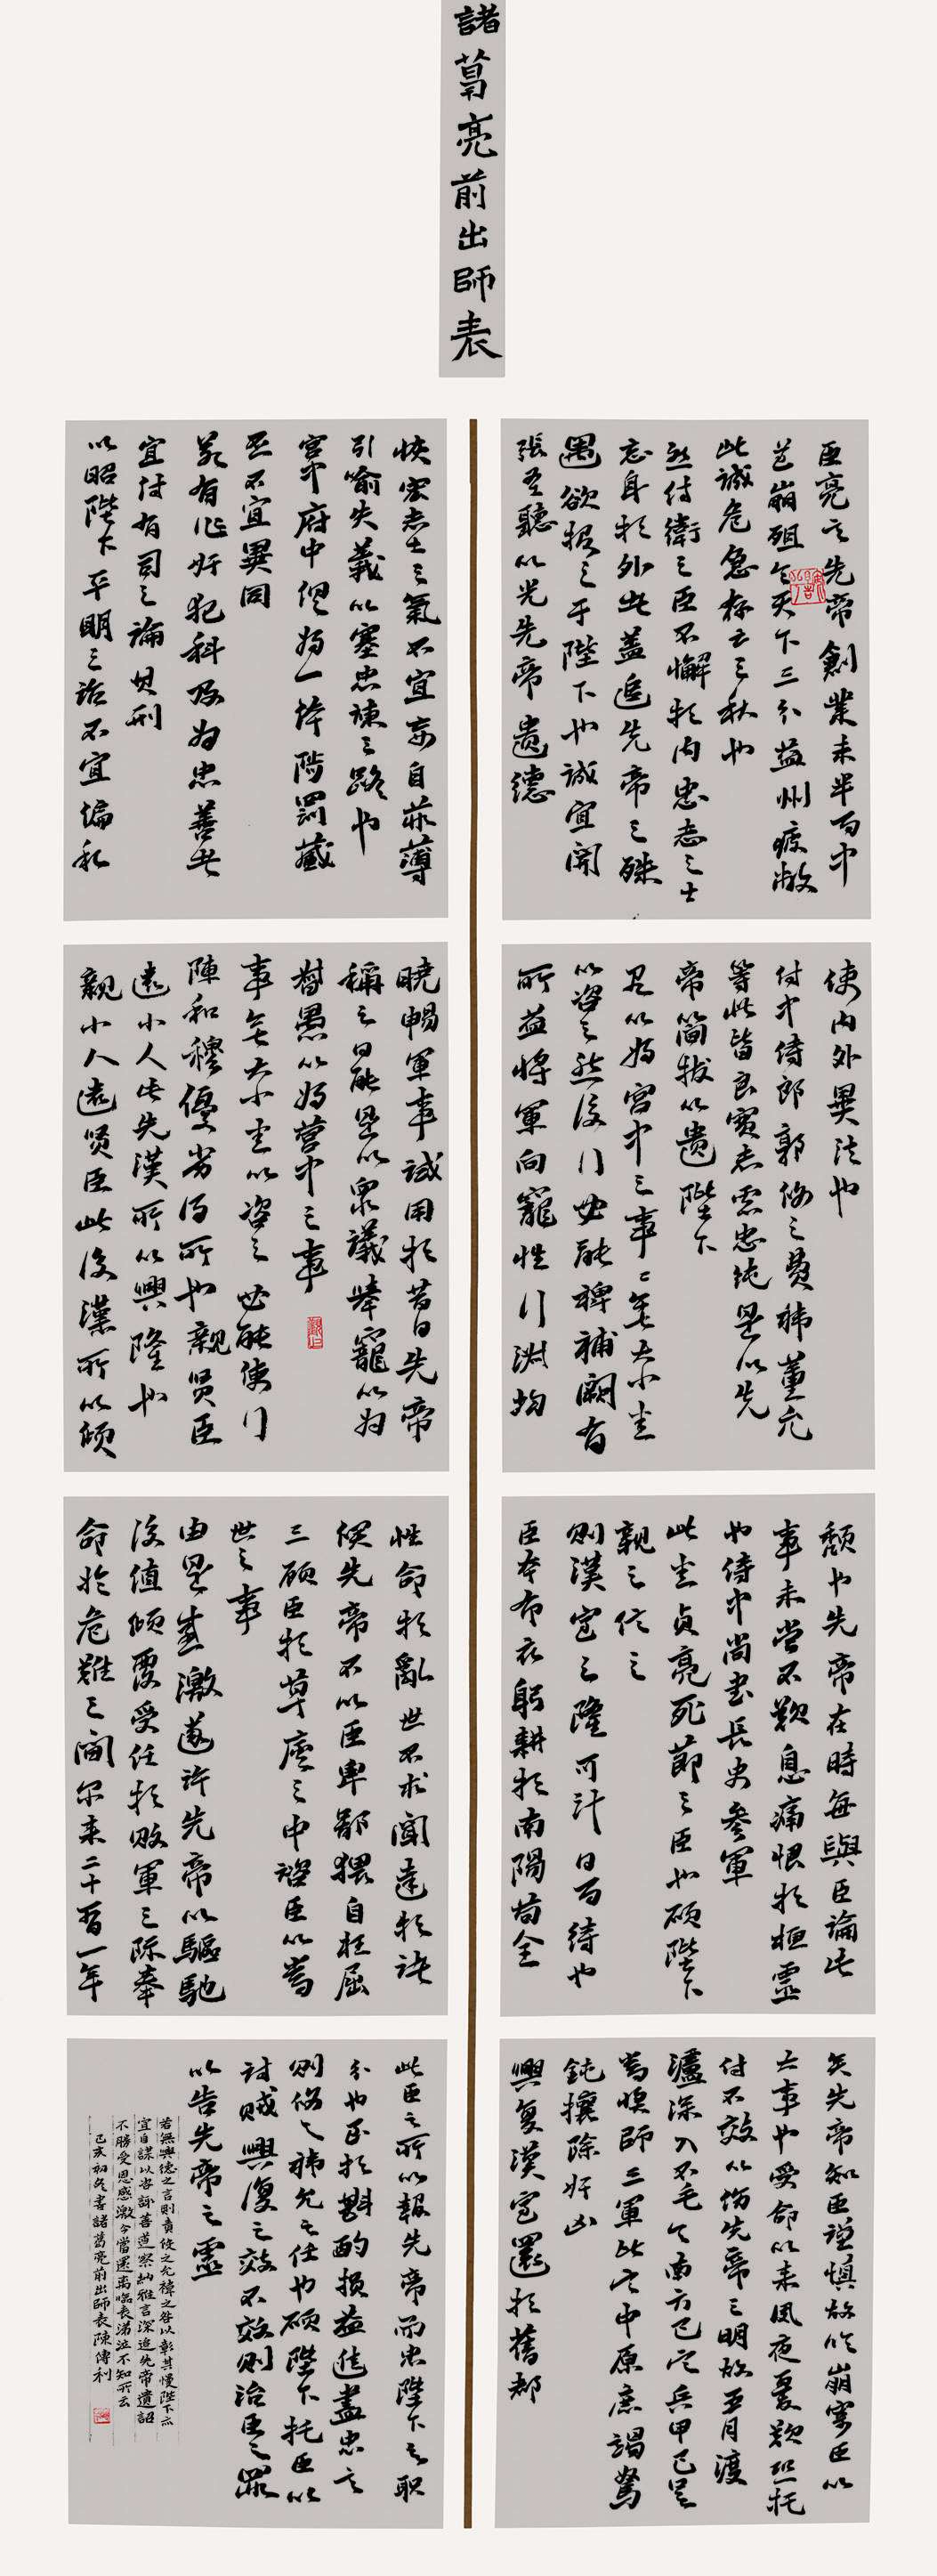 諸葛亮前出師表
臣亮言先帝創業未半而中
道崩殂今天下三分益州疲敝
此誠危急存亡之秋也
然侍衛之臣不懈於內忠志之士
忘身於外此蓋追先帝之殊
遇欲報之于陛下也誠宜開
張聖聽以光先帝遺德
恢宏志士之氣不宜妄自菲薄
引喻失義以塞忠諫之路也
宮中府中俱為一體陟罰臧
否不宜異同
若有作奸犯科及為忠善者
宜付有司之論其刑
以昭陛下平明之治不宜偏私
使內外異法也
侍中侍郎郭攸之費禕董允
等此皆良實志慮忠純是以先
帝簡拔以遺陛下
愚以為宮中之事〻無大小悉
以咨之然後行必能裨補闕有
所益將軍向寵性行淑均
曉暢軍事試用於昔日先帝
稱之曰能是以眾議舉寵以為
督愚以為營中之事
事無大小悉以咨之必能使行
陣和穆優劣得所也親賢臣
遠小人此先漢所以興隆也
親小人遠賢臣此後漢所以傾
頹也先帝在時每與臣論此
事未嘗不歎息痛恨於桓靈
也侍中尚書長史參軍
此悉貞亮死節之臣也願陛下
親之信之
則漢室之隆可計日而待也
臣本布衣躬耕於南陽苟全
性命於亂世不求聞達於諸
侯先帝不以臣卑鄙猥自枉屈
三顧臣於草廬之中諮臣以當
世之事
由是感激遂許先帝以驅馳
後值傾覆受任於敗軍之際奉
命於危難之間尔来二十有一年
矣先帝知臣謹慎故臨崩寄臣以
大事也受命以来夙夜憂歎恐托
付不效以傷先帝之明故五月渡
瀘深入不毛今南方已定兵甲已足
當獎帥三軍北定中原庶竭駑
鈍攘除奸凶
興复漢室還於舊都
此臣之所以報先帝而忠陛下之职
分也至於斟酌損益進盡忠言
則攸之禕允之任也願陛下托臣以
討賊興復之效不效則治臣之罪
以告先帝之靈
若無興德之言則責攸之允禕之咎以彰其慢陛下亦
宜自謀以咨諏善道察納雅言深追先帝遺詔
不勝受恩感激今當遠離臨表涕泣不知所云
己亥初冬書諸葛亮前出師表陳傳利